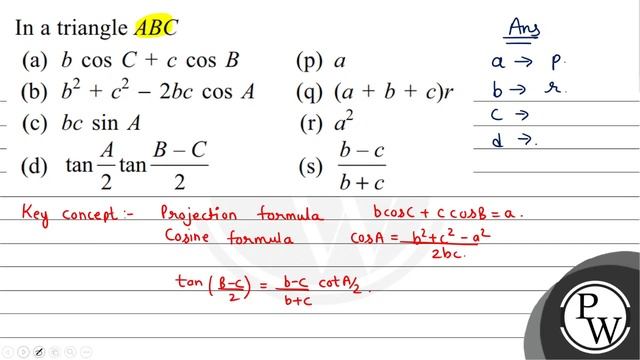 In a triangle ABC
(a) b cos C + c cos B (p) a
(b) b² + c² − 2bc cos A (q) (a + b + c)r
(c) bc sin A (r) a²
(d) tan A/2 tan (B − C)/2 (s) (b − c)/(b + c)
Ans
a → p.
b → r.
c →
d → .
Key concept :- Projection formula b cosC + c cosB = a.
Cosine formula cosA = (b² + c² − a²)/2bc.
tan (B−C/2) = b−c/b+c cot A/2.
PW